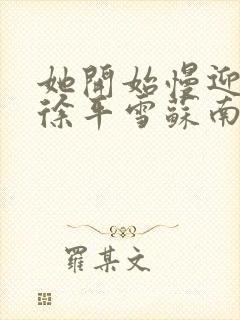 她開始慢迎
徐平雪蘇南
羅某文